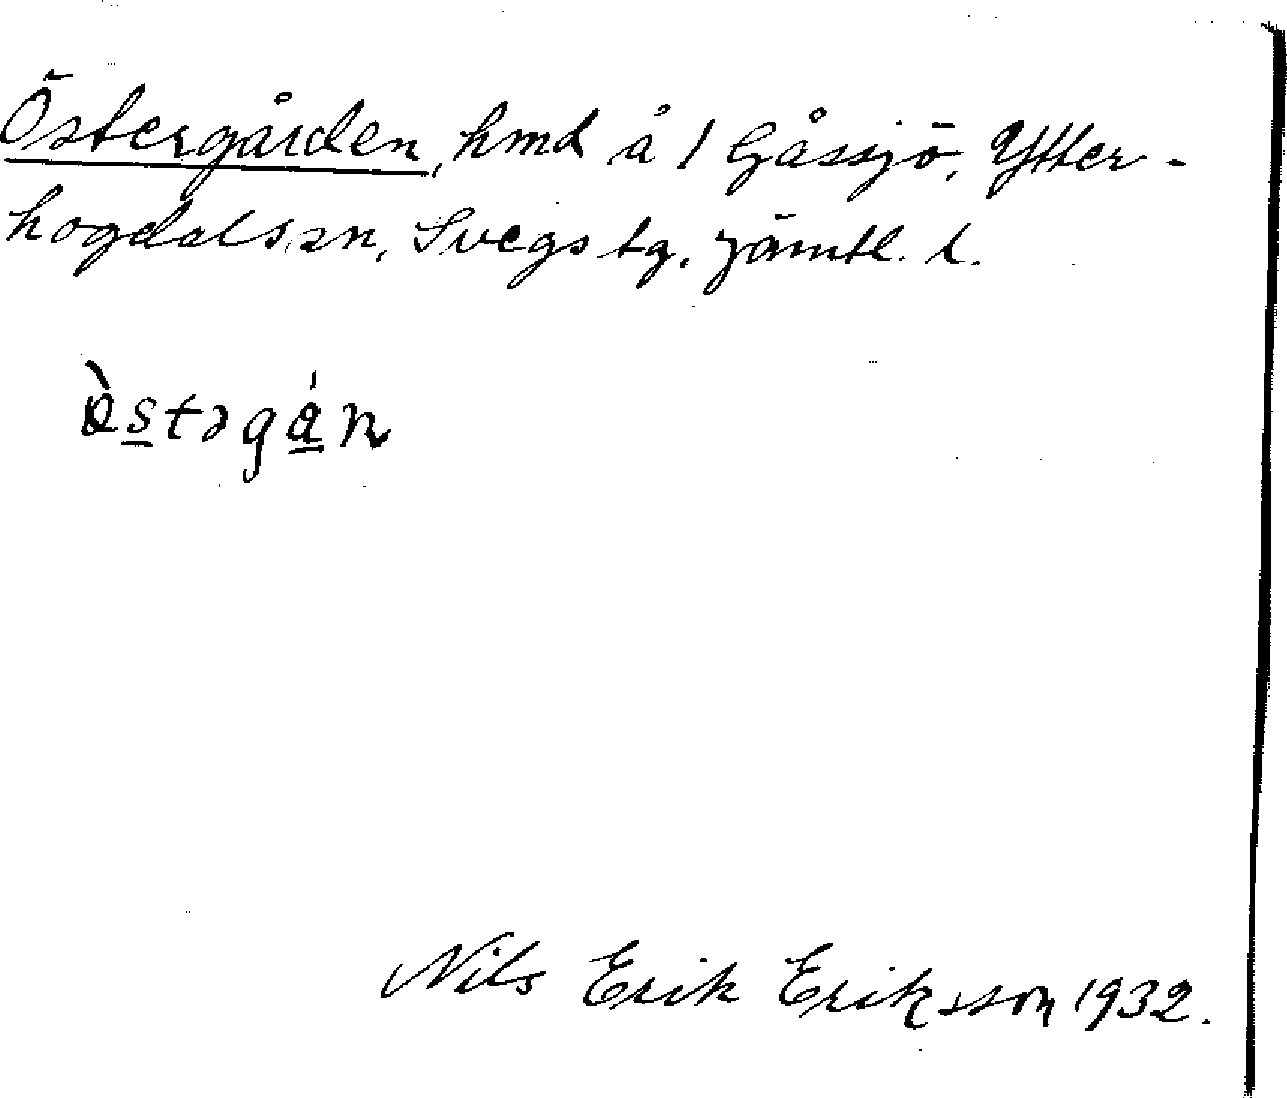 Östergården, hmd å 1 Gåssjö, Ytter-
hogdals sn, Svegs tg. Jämtl. l.
ò̀s̲təgá̲n
Nils Erik Eriksson 1932.